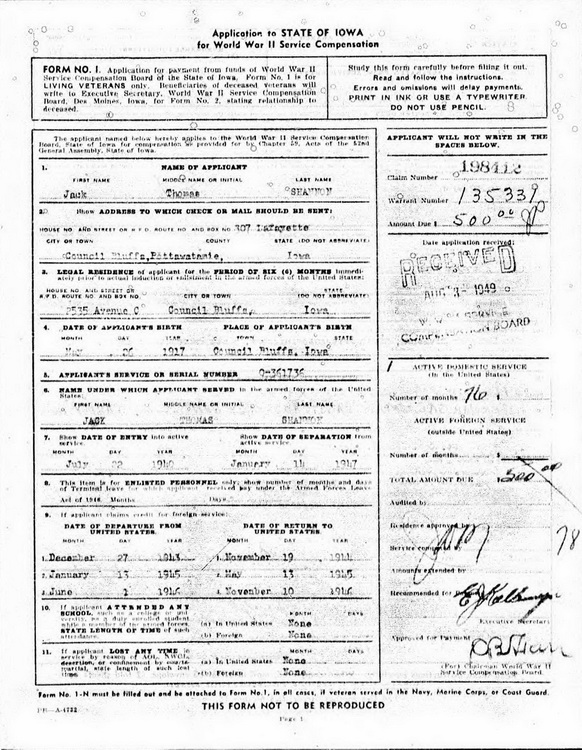 Application to STATE OF IOWA
for World War II Service Compensation
FORM NO. 1. Application for payment from funds of World War II
Service Compensation Board of the State of Iowa. Form No. 1 is for
LIVING VETERANS only. Beneficiaries of deceased veterans will
write to Executive Secretary, World War II Service Compensation
Board, Des Moines, Iowa, for Form No. 2, stating relationship to
deceased.
Study this form carefully before filling it out.
Read and follow the instructions.
Errors and omissions will delay payments.
PRINT IN INK OR USE A TYPEWRITER
DO NOT USE PENCIL.
The applicant named below hereby applies to the World War II Service Compensation
Board, State of Iowa for compensation as provided for by Chapter 59, Acts of the 52nd
General Assembly, State of Iowa.
1. NAME OF APPLICANT
FIRST NAME MIDDLE NAME OR INITIAL LAST NAME
Jack Thomas SHANNON
2. Show ADDRESS TO WHICH CHECK OR MAIL SHOULD BE SENT:
HOUSE NO. AND STREET OR R.F.D. ROUTE NO. AND BOX NO. 307 Lafayette
CITY OR TOWN COUNTY STATE (DO NOT ABBREVIATE)
Council Bluffs, Pottawatamie, Iowa
3. LEGAL RESIDENCE of applicant for the PERIOD OF SIX (6) MONTHS immedi-
ately prior to actual induction or enlistment in the armed forces of the United States:
HOUSE NO. AND STREET OR STATE
R.F.D. ROUTE NO. AND BOX NO. CITY OR TOWN (DO NOT ABBREVIATE)
2535 Avenue C Council Bluffs, Iowa
4. DATE OF APPLICANT'S BIRTH PLACE OF APPLICANT'S BIRTH
MONTH DAY YEAR TOWN STATE
May 26 1917 Council Bluffs, Iowa
5. APPLICANT'S SERVICE OR SERIAL NUMBER O-361736
6. NAME UNDER WHICH APPLICANT SERVED in the armed forces of the United
States:
FIRST NAME MIDDLE NAME OR INITIAL LAST NAME
JACK THOMAS SHANNON
7. Show DATE OF ENTRY into active Show DATE OF SEPARATION from
service. active service.
MONTH DAY YEAR MONTH DAY YEAR
July 22 1940 January 14 1947
8. This item for ENLISTED PERSONNEL only; show number of months and days
of Terminal leave for which applicant received pay under the Armed Forces Leave
Act of 1946. Months Days
9. If applicant claims credit for foreign service:
DATE OF DEPARTURE FROM DATE OF RETURN TO
UNITED STATES. UNITED STATES.
MONTH DAY YEAR MONTH DAY YEAR
1. December 27 1943 1. November 19 1944
2. January 13 1945 2. May 13 1945
3. June 2 1946 3. November 10 1946
10. If applicant ATTENDED ANY MONTH DAY
SCHOOL, such as a college or uni-
versity, as a duty enrolled student (a) In United States None
while a member of the armed forces,
STATE LENGTH OF TIME of such (b) Foreign None
attendance.
11. If applicant LOST ANY TIME in MONTH DAY
service by reason of AOL, AWOL,
desertion, or confinement by courts- (a) In United States None
martial, state length of such lost
time. (b) Foreign None
APPLICANT WILL NOT WRITE IN THE
SPACES BELOW.
Claim Number 198412
Warrant Number 135339
Amount Due $ 500 00
Date application received:
RECEIVED
1949
COMPENSATION BOARD
ACTIVE DOMESTIC SERVICE
(In the United States)
Number of months 76 $
ACTIVE FOREIGN SERVICE
(outside United States)
Number of months $
TOTAL AMOUNT DUE $ 500 00
Audited by
Residence approved by
Service computed by
78
Amounts extended by
Recommended for Payment
Executive Secretary
Approved for Payment
(For) Chairman World War II
Service Compensation Board
Form No. 1-N must be filled out and be attached to Form No.1, in all cases, if veteran served in the Navy, Marine Corps, or Coast Guard.
THIS FORM NOT TO BE REPRODUCED
Page 1